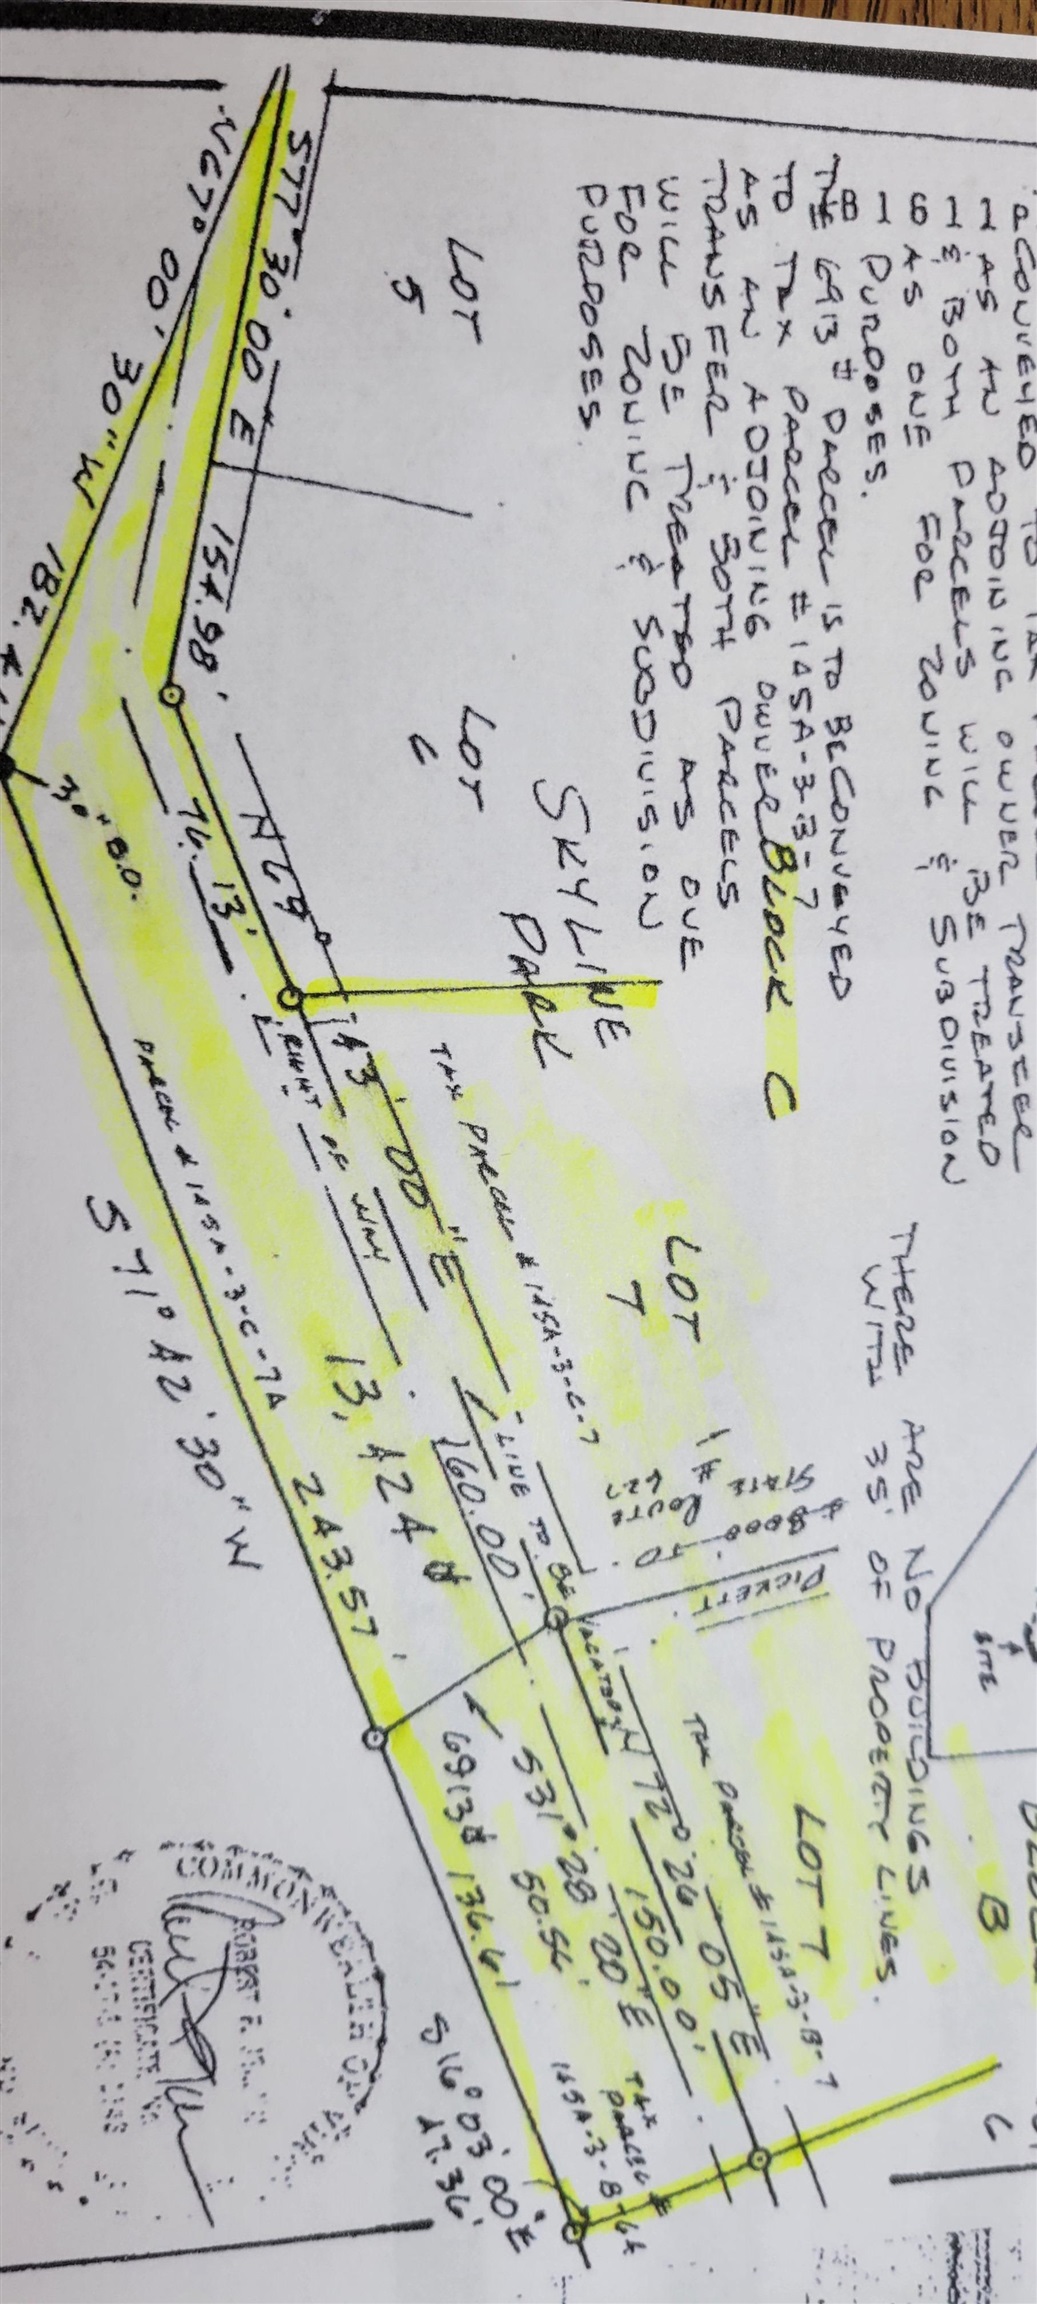 1 AS AN ADJOINING OWNER TRANSFER
1 & BOTH PARCELS WILL BE TREATED
6 AS ONE FOR ZONING & SUBDIVISION
1 PURPOSES.
THE 6913 # PARCEL IS TO BE CONVEYED
TO TAX PARCEL # 145A-3-B-7
AS AN ADJOINING OWNER
TRANSFER & BOTH PARCELS
WILL BE TREATED AS ONE
FOR ZONING & SUBDIVISION
PURPOSES
BLOCK C
THERE ARE NO BUILDINGS
WITH 35' OF PROPERTY LINES.
SITE
B
C
SKYLINE
PARK
LOT
5
LOT
6
LOT
7
LOT 7
TAX PARCEL # 145A-3-C-7
TAX PARCEL # 145A-3-B-7
PICKETT
STATE ROUTE
627
S77° 30' 00 E
154.98'
N67° 00' 30" W
30" B.O.
74.13'
N69° 43' 00" E
160.00'
RIGHT OF WAY
LINE TO BE VACATED
PARCEL # 145A-3-C-7A
13,424
S 71° 42' 30" W
243.57'
S31° 28' 20" E
50.54'
N 72° 26' 05" E
150.00'
6913
136.61
TAX
PARCEL #
145A-3-B-6A
S16° 03' 00" E
47.36'
COMMONWEALTH OF
ROBERT F.
CERTIFICATE